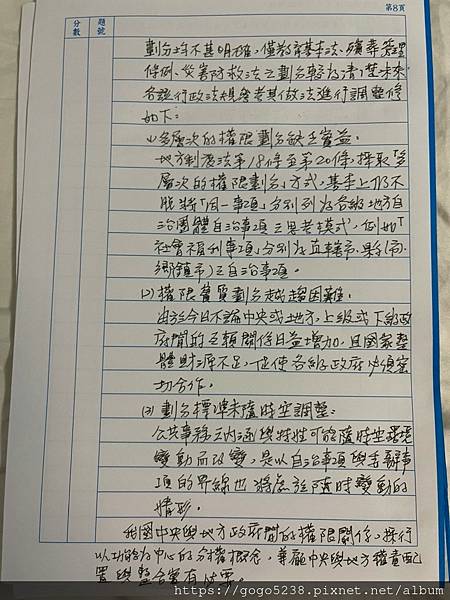 第8頁
題號
分數
劃分均不甚明確，僅教育基本法、殯葬管理
條例、災害防救法之劃分較為清楚，未來
各該行政法規應考其做法進行調整修
如下：
(1)多層次的權限劃分缺乏實益：
地方制度法第18條至第20條，採取「多
層次的權限劃分」方式，基本上仍不
脫將「同一事項」分別列為各級地方自
治團體自治事項之思考模式，例如「
社會福利事項」分別為直轄市、縣(市)、
鄉(鎮、市)之自治事項。
(2)權限舊貫劃分越趨困難：
由於今日不論中央或地方，上級或下級政
府間的互賴關係日益增加，且國家整
體財源不足，促使各級政府必須密
切合作。
(3)劃分標準未隨時空調整：
公共事務之內涵與特性可能隨時空環境
變動而改變，是以自治事項與委辦事
項的界線也將產生隨時變動的
情形。
我國中央與地方政府間的權限關係，採行
以功能為中心的分權概念，兼顧中央與地方權責配
置與整合實有必要。
https://gogo5238.pixnet.net/album